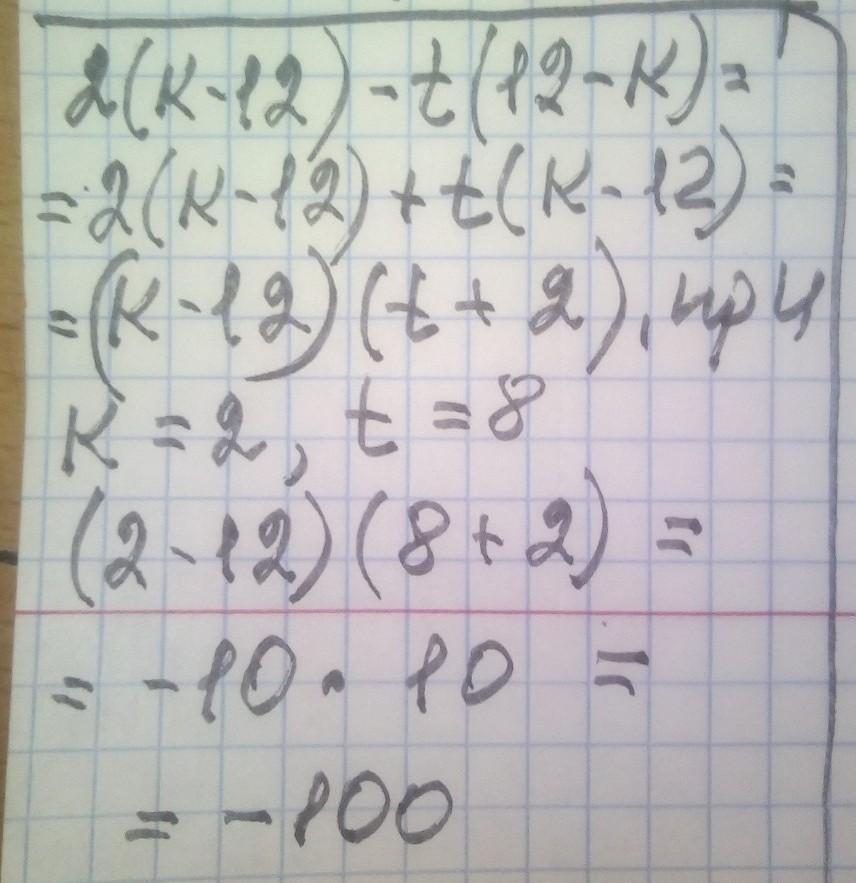 2(к-12)-t(12-к)=
=2(к-12)+t(к-12)=
=(к-12)(t+2), при
к=2, t=8
(2-12)(8+2)=
=-10·10=
=-100